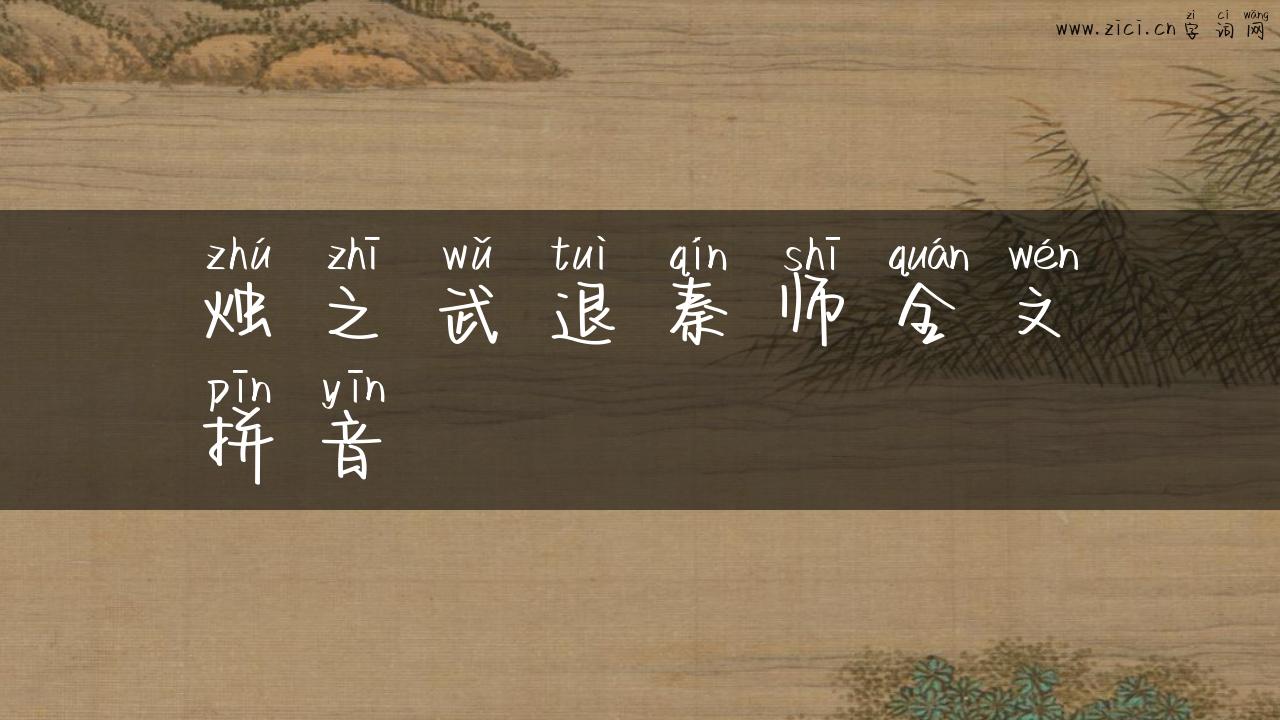 zì cí wǎng
www.zici.cn 字词网
zhú zhī wǔ tuì qín shī quán wén
烛之武退秦师全文
pīn yīn
拼音